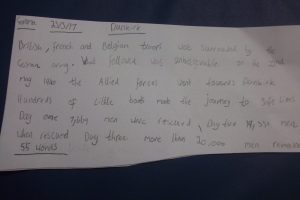 23/3/17 Dunkirk
British, French and Belgian troops were surrounded by the
German army. What followed was unbelievable. On the 22nd
may 1940 the Allied forces went towards Dunkirk
Hundreds of little boats made the journey to save lives
Day one 7,669 men were rescued, Day two 17,
when rescued Day three more than 20,000 men
55 words